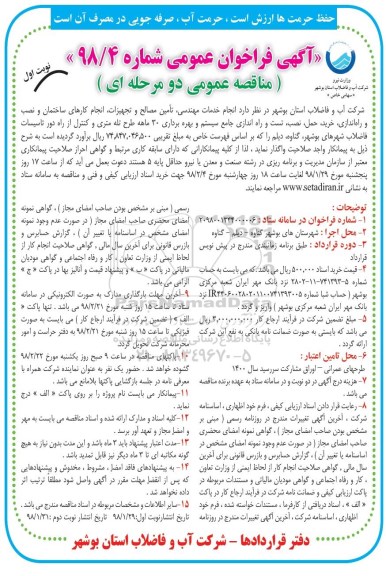 حفظ حرمت ها ارزش است ، حرمت آب ، صرفه جویی در مصرف آن است
وزارت نیرو
شرکت آب و فاضلاب استان بوشهر
«سهامی خاص»
«آگهی فراخوان عمومی شماره ۹۸/۴»
( مناقصه عمومی دو مرحله ای )
نوبت اول
شرکت آب و فاضلاب استان بوشهر در نظر دارد انجام خدمات مهندسی، تأمین مصالح و تجهیزات، انجام کارهای ساختمان و نصب
و راه‌اندازی، خرید، حمل، نصب، تست و راه اندازی جامع سیستم و بهره برداری ۲۰ ماهه طرح تله متری و کنترل از راه دور تاسیسات
فاضلاب شهرهای بوشهر، گناوه، دیلم را که بر اساس فهرست خاص به مبلغ تقریبی ۷۴،۸۳۷،۰۴۶،۵۰۰ ریال برآورد گردیده است به شرح
ذیل به پیمانکار واجد صلاحیت واگذار نماید ، لذا از کلیه پیمانکارانی که دارای سابقه کاری مرتبط و گواهی احراز صلاحیت پیمانکاری
معتبر از سازمان مدیریت و برنامه ریزی در رشته صنعت و معدن یا نیرو حداقل پایه ۵ هستند دعوت بعمل می آید که از ساعت ۱۷ روز
پنجشنبه مورخ ۹۸/۱/۲۹ لغایت ساعت ۱۸ روز چهارشنبه مورخ ۹۸/۲/۴ جهت خرید اسناد ارزیابی کیفی و فنی و مناقصه به سامانه ستاد
به نشانی www.setadiran.ir مراجعه نمایند.
توضیحات :
۱- شماره فراخوان در سامانه ستاد :
۲- محل اجرا : شهرستان های بوشهر - گناوه - دیلم
۳- دوره قرارداد : طبق برنامه زمانبندی مندرج در پیش نویس
قرارداد
۴- قیمت خرید اسناد ۵۰۰،۰۰۰ ریال می باشد، که می بایست به حساب
نزد بانک ملی ایران شعبه مرکزی
بوشهر ( حساب شبا شماره نزد
بانک ملی ایران شعبه مرکزی بوشهر ) واریز و گردد.
۵- مبلغ تضمین شرکت در فرآیند ارجاع کار ریال
می باشد که بایستی به صورت ضمانت نامه بانکی به نفع این شرکت
ارائه گردد.
۶- محل تامین اعتبار :
طرحهای عمرانی - اوراق مشارکت سررسید سال ۱۴۰۰
۷- هزینه درج آگهی در دو نوبت و در سامانه ستاد به عهده برنده مناقصه
می باشد.
۸- رعایت قرار دادن اسناد ارزیابی کیفی ، فرم خود اظهاری ، اساسنامه
شرکت ، آخرین آگهی تغییرات مندرج در روزنامه رسمی ( مبنی بر
مشخص بودن صاحب امضای مجاز ) ، گواهی نمونه امضای محضری
صاحب امضای مجاز ( در صورت عدم وجود نمونه امضای مشخص در
اساسنامه یا تغییر آن ) ، گزارش حسابرس و بازرس قانونی برای آخرین
سال مالی ، گواهی صلاحیت انجام کار از لحاظ ایمنی از وزارت تعاون
، کار و رفاه اجتماعی و گواهی مودیان مالیاتی و مستندات مربوطه در
پاکت ارزیابی کیفی و ضمانت نامه شرکت در فرآیند ارجاع کار در پاکت
« الف » ، اسناد دریافتی از کارفرما ، مستندات خواسته شده ، فرم خود
اظهاری ، اساسنامه شرکت ، آخرین آگهی تغییرات مندرج در روزنامه
رسمی ( مبنی بر مشخص بودن صاحب امضای مجاز ) ، گواهی نمونه
امضای محضری صاحب امضای مجاز ( در صورت عدم وجود نمونه
امضای مشخص در اساسنامه یا تغییر آن ) ، گزارش حسابرس و
بازرس قانونی برای آخرین سال مالی ، گواهی صلاحیت انجام کار از
لحاظ ایمنی از وزارت تعاون ، کار و رفاه اجتماعی و گواهی مودیان
مالیاتی در پاکت « ب » و پیشنهاد قیمت و آنالیز بها در پاکت « ج »
الزامی می باشد .
۹- آخرین مهلت بارگذاری مدارک به صورت الکترونیکی در سامانه
ستاد ساعت ۱۵ روز شنبه مورخ ۹۸/۲/۲۱ می باشد . تنها پاکت «
الف » ( تضمین شرکت در فرآیند ارجاع کار ) می بایست به صورت
فیزیکی تا ساعت ۱۵ روز شنبه مورخ ۹۸/۲/۲۱ به دفتر حراست و امور
محرمانه شرکت تحویل گردد.
۱۰- پاکتهای مناقصه در ساعت ۹ صبح روز یکشنبه مورخ ۹۸/۲/۲۲
گشوده خواهد شد . حضور یک نفر به عنوان نماینده شرکت همراه با
معرفی نامه در جلسه بازگشایی پاکتها بلامانع می باشد .
۱۱- پیمانکار می بایست نام پروژه را بر روی پاکت « الف » درج
نماید.
۱۲- کلیه اسناد و مدارک ارائه شده و اسناد مناقصه می بایست به مهر
و امضا مجاز و تعهد آور برسد .
۱۳- مدت اعتبار پیشنهاد باید ۳ ماه باشد و این مدت بدون نیاز به هیچ
گونه مکاتبه ای تا ۳ ماه دیگر نیز قابل تمدید باشد .
۱۴- به پیشنهادهای فاقد امضا ، مشروط ، مخدوش و پیشنهادهایی
که پس از انقضا مهلت مقرر در آگهی واصل شود مطلقا ترتیب اثر
داده نخواهد شد .
۱۵- سایر اطلاعات و مشخصات مربوط در اسناد مناقصه مندرج می باشد .
تاریخ انتشار نوبت اول: ۹۸/۱/۲۹ تاریخ انتشار نوبت دوم : ۹۸/۱/۳۱
دفتر قراردادها - شرکت آب و فاضلاب استان بوشهر